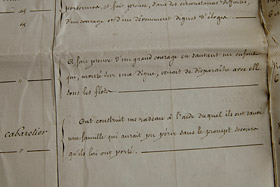 personnes, et fait preuve, dans des circonstances difficiles,
d'un courage et d'un dévouement dignes d'éloges.
A fait preuve d'un grand courage en sauvant un enfant
qui, monté sur une digue, venait de disparaître avec elle
sous les flots.
cabaretier
Ont construit un radeau à l'aide duquel ils ont sauvé
une famille qui aurait pu périr sans le prompt secours
qu'ils lui ont porté.